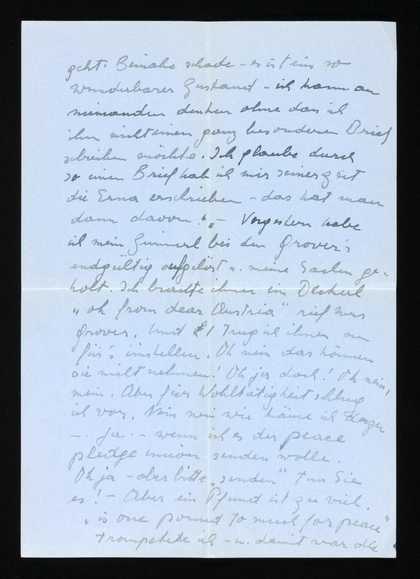 geht. Beinahe schade - es ist ein so
wunderbarer Zustand - ich kann an
niemanden denken ohne dass ich
ihm nicht einen ganz besonderen Brief
schreiben möchte. Ich glaube durch
so einen Brief hab ich mir seinerzeit
die Erna erschrieben - das hat man
dann davon! - Vorgestern habe
ich mein Zimmerl bei den Grover's
endgültig aufgelöst u. meine Sachen ge-
holt. Ich brachte ihnen ein Deckerl
"oh from dear Austria" rief Mrs
Grover. Und £1 trug ich ihnen an
für's einstellen. Oh nein das können
sie nicht nehmen! Oh ja doch! Oh nein,
nein. Aber für Wohltätigkeit schlug
ich vor. Nein nein wie käme ich dazu
-. Ja - - wenn ich es der peace
pledge union senden wolle.
Oh ja - aber bitte "senden" tun Sie
es! - Aber ein Pfund ist zu viel.
"is one pound to much for peace"
trompetete ich - u. damit war die